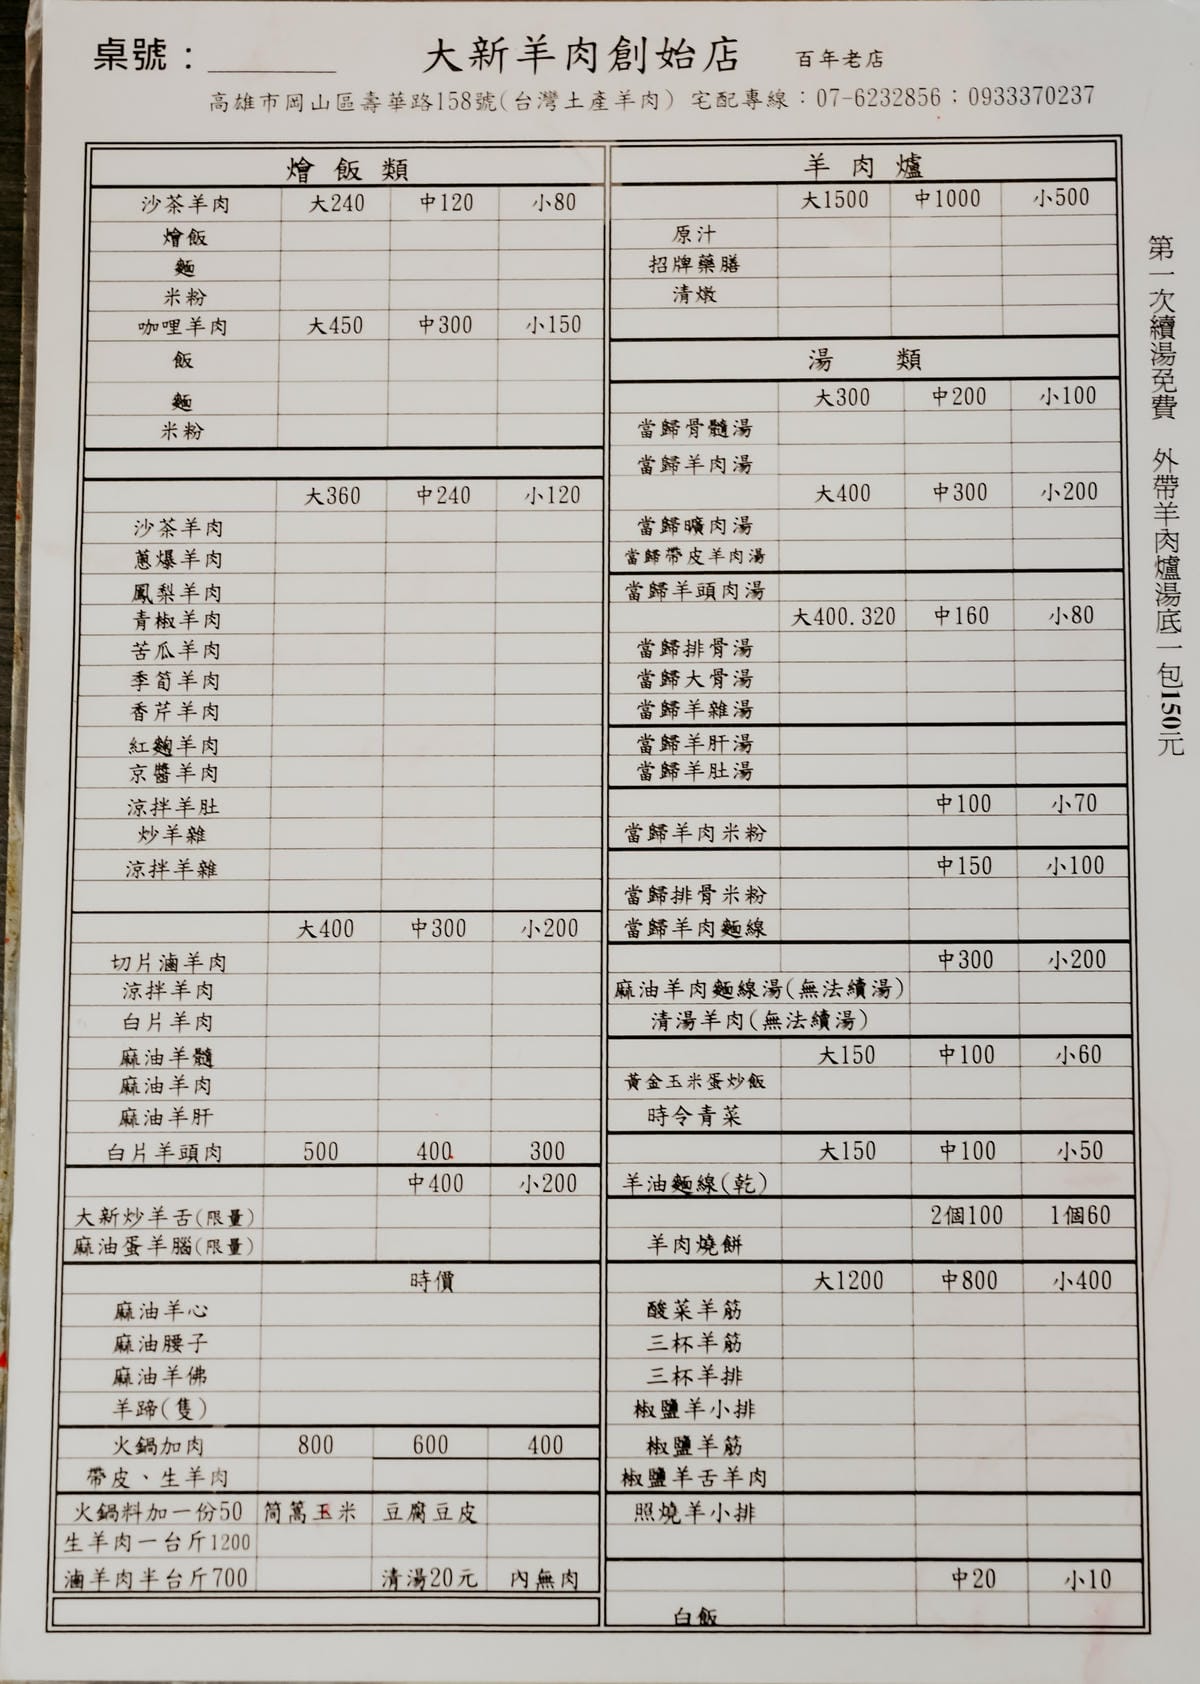 桌號：
大新羊肉創始店 百年老店
高雄市岡山區壽華路158號(台灣土產羊肉) 宅配專線：07-6232856；0933370237
燴飯類
沙茶羊肉 大240 中120 小80
燴飯
麵
米粉
咖哩羊肉 大450 中300 小150
飯
麵
米粉
大360 中240 小120
沙茶羊肉
蔥爆羊肉
鳳梨羊肉
青椒羊肉
苦瓜羊肉
季筍羊肉
香芹羊肉
紅麴羊肉
京醬羊肉
涼拌羊肚
炒羊雜
涼拌羊雜
大400 中300 小200
切片滷羊肉
涼拌羊肉
白片羊肉
麻油羊髓
麻油羊肉
麻油羊肝
白片羊頭肉 500 400 300
中400 小200
大新炒羊舌(限量)
麻油蛋羊腦(限量)
時價
麻油羊心
麻油腰子
麻油羊佛
羊蹄(隻)
火鍋加肉 800 600 400
帶皮、生羊肉
火鍋料加一份50 茼蒿玉米 豆腐豆皮
生羊肉一台斤1200
滷羊肉半台斤700 清湯20元 內無肉
羊肉爐
大1500 中1000 小500
原汁
招牌藥膳
清燉
湯類
大300 中200 小100
當歸骨髓湯
當歸羊肉湯
大400 中300 小200
當歸曠肉湯
當歸帶皮羊肉湯
當歸羊頭肉湯
大400.320 中160 小80
當歸排骨湯
當歸大骨湯
當歸羊雜湯
當歸羊肝湯
當歸羊肚湯
中100 小70
當歸羊肉米粉
中150 小100
當歸排骨米粉
當歸羊肉麵線
中300 小200
麻油羊肉麵線湯(無法續湯)
清湯羊肉(無法續湯)
大150 中100 小60
黃金玉米蛋炒飯
時令青菜
大150 中100 小50
羊油麵線(乾)
2個100 1個60
羊肉燒餅
大1200 中800 小400
酸菜羊筋
三杯羊筋
三杯羊排
椒鹽羊小排
椒鹽羊筋
椒鹽羊舌羊肉
照燒羊小排
中20 小10
白飯
第一次續湯免費 外帶羊肉爐湯底一包150元